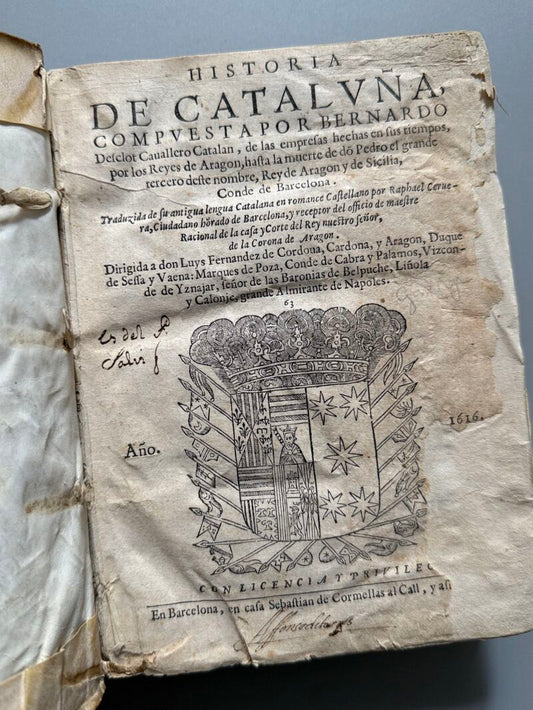 HISTORIA
DE CATALVÑA,
COMPVESTA POR BERNARDO
Desclot Cauallero Catalan, de las empresas hechas en sus tiempos,
por los Reyes de Aragon, hasta la muerte de dõ Pedro el grande
tercero deste nombre, Rey de Aragon y de Sicilia,
Conde de Barcelona.
Traduzida de su antigua lengua Catalana en romance Castellano por Raphael Cerue-
ra, Ciudadano hõrado de Barcelona, y receptor del officio de maestre
Racional de la casa y Corte del Rey nuestro señor,
de la Corona de Aragon.
Dirigida a don Luys Fernandez de Cordoua, Cardona, y Aragon, Duque
de Sessa y Vaena: Marques de Poza, Conde de Cabra y Palamos, Vizcon-
de de Yznajar, señor de las Baronias de Belpuche, Liñola
y Calonje, grande Almirante de Napoles.
63
es del P.
Año.
1616.
CON LICENCIA Y PRIVILEG
En Barcelona, en casa Sebastian de Cormellas al Call, y a su